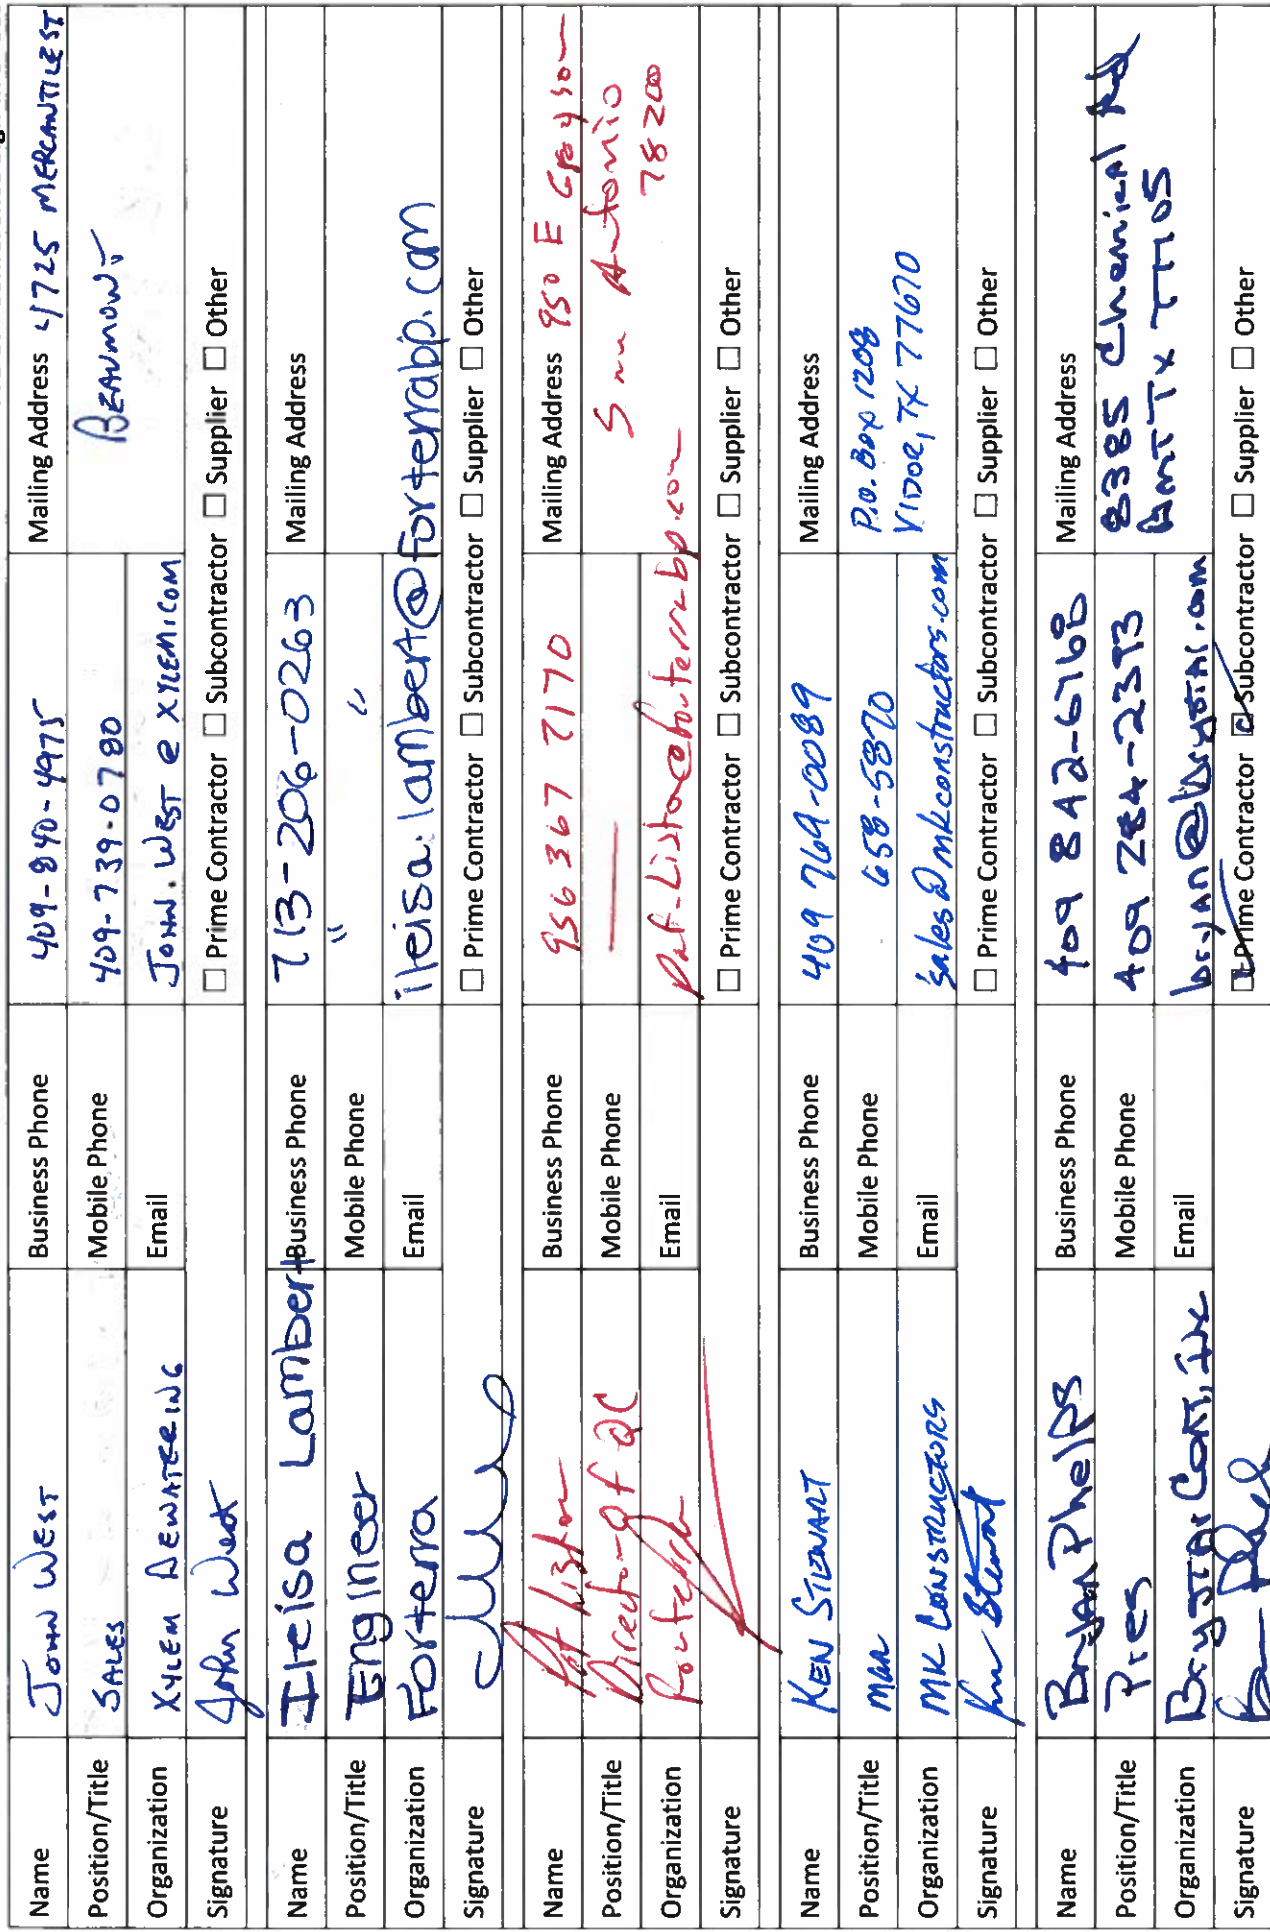 Name JOHN WEST Business Phone 409-840-4975 Mailing Address 4725 MERCANTILE ST
Position/Title SALES Mobile Phone 409-739-0780 BEAUMONT
Organization XYLEM DEWATERING Email JOHN.WEST@XYLEM.COM
Signature John West ☐ Prime Contractor ☐ Subcontractor ☐ Supplier ☐ Other
Name Ileisa Lambert Business Phone 713-206-0263 Mailing Address
Position/Title Engineer Mobile Phone " "
Organization Forterra Email ileisa.lambert@forterrabp.com
Signature ☐ Prime Contractor ☐ Subcontractor ☐ Supplier ☐ Other
Name Pat Liston Business Phone 956 367 7170 Mailing Address 950 E Grayson
Position/Title Director of QC Mobile Phone — San Antonio
Organization Email 78200
Signature ☐ Prime Contractor ☐ Subcontractor ☐ Supplier ☐ Other
Name KEN STEWART Business Phone 409 769-0089 Mailing Address
Position/Title MGR Mobile Phone 658-5870 P.O. Box 1208
Organization MK CONSTRUCTORS Email sales@mkconstructors.com VIDOR, TX 77670
Signature Ken Stewart ☐ Prime Contractor ☐ Subcontractor ☐ Supplier ☐ Other
Name Bryan Phelps Business Phone 409 842-6768 Mailing Address
Position/Title Pres Mobile Phone 409 284-2393 8385 Chemical Rd
Organization Email BMT TX 77705
Signature Prime Contractor Subcontractor ☐ Supplier ☐ Other